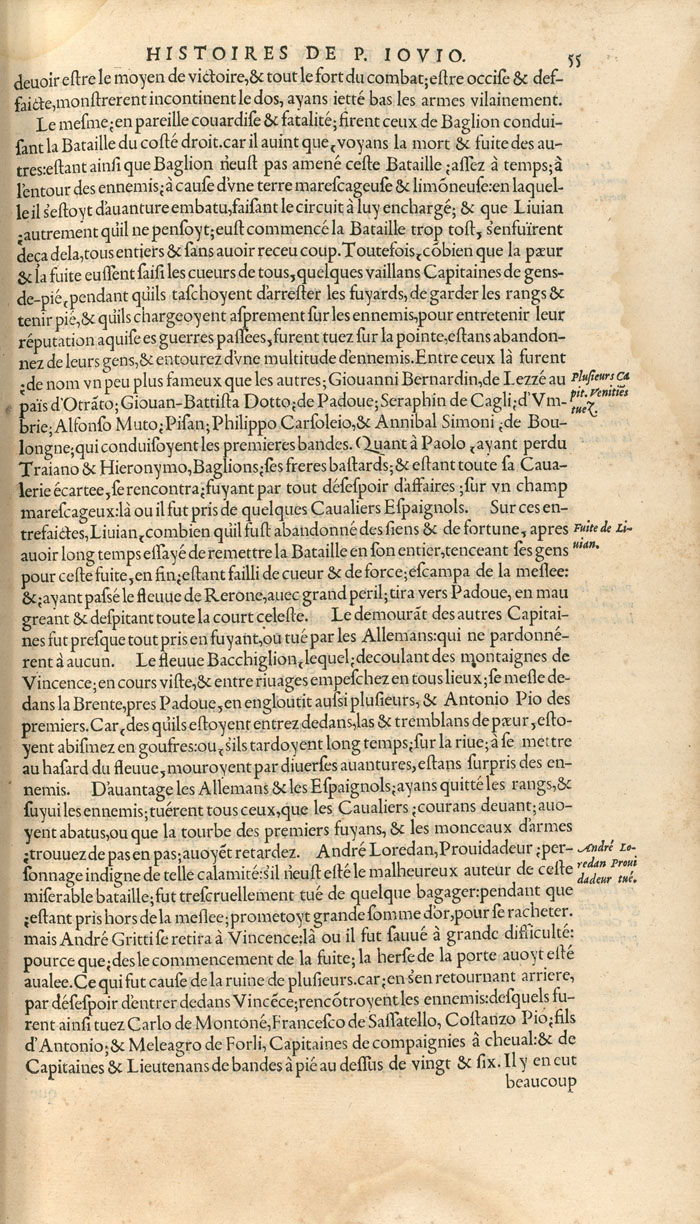 HISTOIRES DE P. IOVIO. 55
deuoir eſtre le moyen de victoire,& tout le fort du combat;eſtre occiſe & def-
faicte,monſtrerent incontinent le dos, ayans ietté bas les armes vilainement.
Le meſme;en pareille couardiſe & fatalité;firent ceux de Baglion condui-
ſant la Bataille du coſté droit.car il auint que,voyans la mort & fuite des au-
tres:eſtant ainſi que Baglion n'euſt pas amené ceſte Bataille ;aſſez à temps;à
l'entour des ennemis;à cauſe d'vne terre mareſcageuſe & limõneuſe:en laquel-
le il s'eſtoyt d'auanture embatu,faiſant le circuit à luy enchargé; & que Liuian
;autrement qu'il ne penſoyt;euſt commencé la Bataille trop toſt, s'enfuïrent
deça dela,tous entiers & ſans auoir receu coup.Toutefois,cõbien que la pœur
& la fuite euſſent ſaiſi les cueurs de tous,quelques vaillans Capitaines de gens-
de-pié,pendant qu'ils taſchoyent d'arreſter les fuyards,de garder les rangs &
tenir pié,& qu'ils chargeoyent aſprement ſur les ennemis,pour entretenir leur
réputation aquiſe es guerres paſſées,furent tuez ſur la pointe,eſtans abandon-
nez de leurs gens,& entourez d'vne multitude d'ennemis.Entre ceux là furent
;de nom vn peu plus fameux que les autres;Giouanni Bernardin,de Lezzé au
Pluſieurs Ca
païs d'Otrãto;Giouan-Battiſta Dotto;de Padoue;Seraphin de Cagli;d'Vm-
pit. Venitiẽs
brie;Alfonſo Muto;Piſan;Philippo Carſoleio,& Annibal Simoni ;de Bou-
tuez.
longne;qui conduiſoyent les premieres bandes. Quant à Paolo ,ayant perdu
Traiano & Hieronymo,Baglions;ſes freres baſtards;& eſtant toute ſa Caua-
lerie écartee,ſe rencontra;fuyant par tout déſeſpoir d'affaires ;ſur vn champ
mareſcageux:là ou il fut pris de quelques Caualiers Eſpaignols. Sur ces en-
trefaictes,Liuian,combien qu'il fuſt abandonné des ſiens & de fortune, apres
Fuite de Li-
auoir long temps eſſayé de remettre la Bataille en ſon entier,tenceant ſes gens
uian.
pour ceſte fuite,en fin;eſtant failli de cueur & de force;eſcampa de la meſlee:
&;ayant paſsé le fleuue de Rerone,auec grand peril;tira vers Padoue, en mau
greant & deſpitant toute la court celeſte. Le demourãt des autres Capitai-
nes fut preſque tout pris en fuyant,ou tué par les Allemans:qui ne pardonné-
rent à aucun. Le fleuue Bacchiglion,lequel;decoulant des montaignes de
Vincence;en cours viſte,& entre riuages empeſchez en tous lieux;ſe meſle de-
dans la Brente,pres Padoue,en engloutit auſsi pluſieurs, & Antonio Pio des
premiers.Car,des qu'ils eſtoyent entrez dedans,las & tremblans de pœur,eſto-
yent abiſmez en goufres:ou,s'ils tardoyent long temps;ſur la riue;à ſe mettre
au haſard du fleuue,mouroyent par diuerſes auantures,eſtans ſurpris des en-
nemis. D'auantage les Allemans & les Eſpaignols;ayans quitté les rangs,&
ſuyui les ennemis;tuérent tous ceux,que les Caualiers ;courans deuant;auo-
yent abatus,ou que la tourbe des premiers fuyans, & les monceaux d'armes
;trouuez de pas en pas;auoyẽt retardez. André Loredan,Prouidadeur ;per-
André Lo-
ſonnage indigne de telle calamité:s'il n'euſt eſté le malheureux auteur de ceſte
redan Proui
miſerable bataille;fut trescruellement tué de quelque bagager:pendant que
dadeur tué.
;eſtant pris hors de la meſlee;prometoyt grande ſomme d'or,pour ſe racheter.
mais André Gritti ſe retira à Vincence:là ou il fut ſauué à grande difficulté:
pource que;des le commencement de la fuite; la herſe de la porte auoyt eſté
aualee.Ce qui fut cauſe de la ruine de pluſieurs.car;en s'en retournant arriere,
par déſeſpoir d'entrer dedans Vincẽce;rencõtroyent les ennemis:deſquels fu-
rent ainſi tuez Carlo de Montoné,Franceſco de Saſſatello, Coſtanzo Pio;fils
d'Antonio;& Meleagro de Forli, Capitaines de compaignies à cheual:& de
Capitaines & Lieutenans de bandes à pié au deſſus de vingt & ſix. Il y en eut
beaucoup